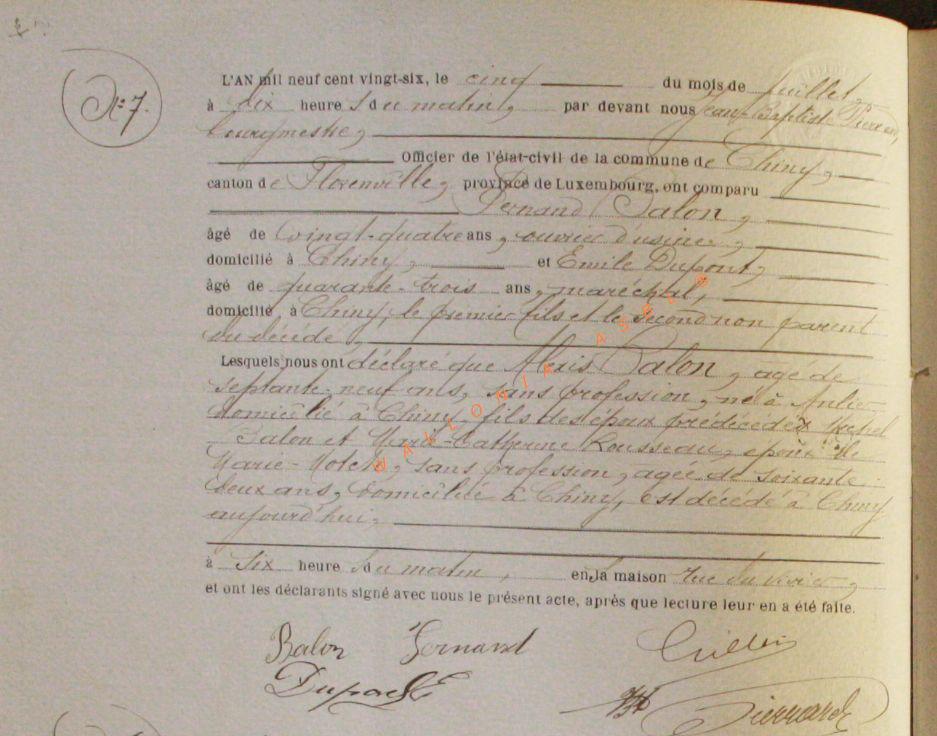 N° 7.
L'AN mil neuf cent vingt-six, le cinq du mois de Juillet,
à dix heures du matin, par devant nous Jean-Baptiste
bourgmestre,
Officier de l'état-civil de la commune de Chiny,
canton de Florenville, province de Luxembourg, ont comparu
Fernand Balon,
âgé de vingt-quatre ans, ouvrier d'usine,
domicilié à Chiny, et Emile Dupont,
âgé de quarante-trois ans, maréchal,
domicilié à Chiny, le premier fils et le second non parent
du décédé,
Lesquels nous ont déclaré que Alexis Balon, âgé de
septante-neuf ans, sans profession, né à Anlier
domicilié à Chiny, fils des époux prédécédés
Balon et Marie-Catherine Rousseau, époux de
Marie, sans profession, agée de soixante
deux ans, domiciliée à Chiny, est décédé à Chiny
aujourd'hui,
à six heures du matin, en la maison rue du vivier,
et ont les déclarants signé avec nous le présent acte, après que lecture leur en a été faite.
Balon Fernand
Dupont E
WALLONIE ASBL